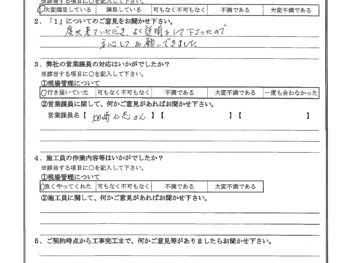 ※該当する項目に○を記入して下さい。
大変満足している 満足している 可もなく不可もなく 不満である 大変不満である
2．「1」についてのご意見をお聞かせ下さい。
度々来ていただき、よく説明をして下さったので
安心してお願いできました
3．弊社の営業課員の対応はいかがでしたか？
※該当する項目に○を記入して下さい。
①現場管理について
行き届いていた 可もなく不可もなく 不満である 大変不満である 一度も会わなかった
②営業課員に関して、何かご意見があればお聞かせ下さい。
営業課員名【 さん 】【 】【 】
4．施工員の作業内容等はいかがでしたか？
※該当する項目に○を記入して下さい。
①現場管理について
良くやってくれた 可もなく不可もなく 不満である 大変不満である
②施工員に関して、何かご意見があればお聞かせ下さい。
5．ご契約時点から工事完工まで、何かご意見等がありましたらお聞かせ下さい。